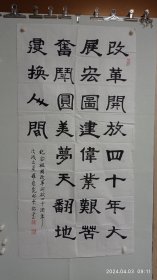 改革開放四十年大
展宏圖建偉業艱苦
奮鬥圓美夢天翻地
覆換人間
2024-04-03 09:11